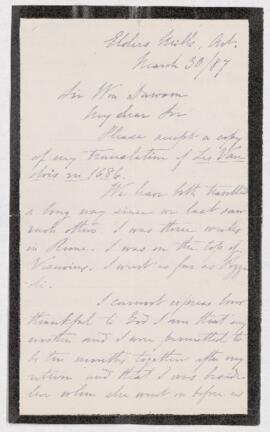 Elders Mills, Ont.
March 30/87
Sir Wm Dawson
My dear Sir
Please accept a copy
of my translation of Les Vau
dois in 1686.
We have both travelled
a long way since we last saw
each other. I was three weeks
in Rome. I was on the top of
Vesuvius. I went as far as Pozzu
oli.
I cannot express how
thankful to God I am that my
mother and I were permitted to
be ten months together after my
return and that I was beside
her when she went in before us